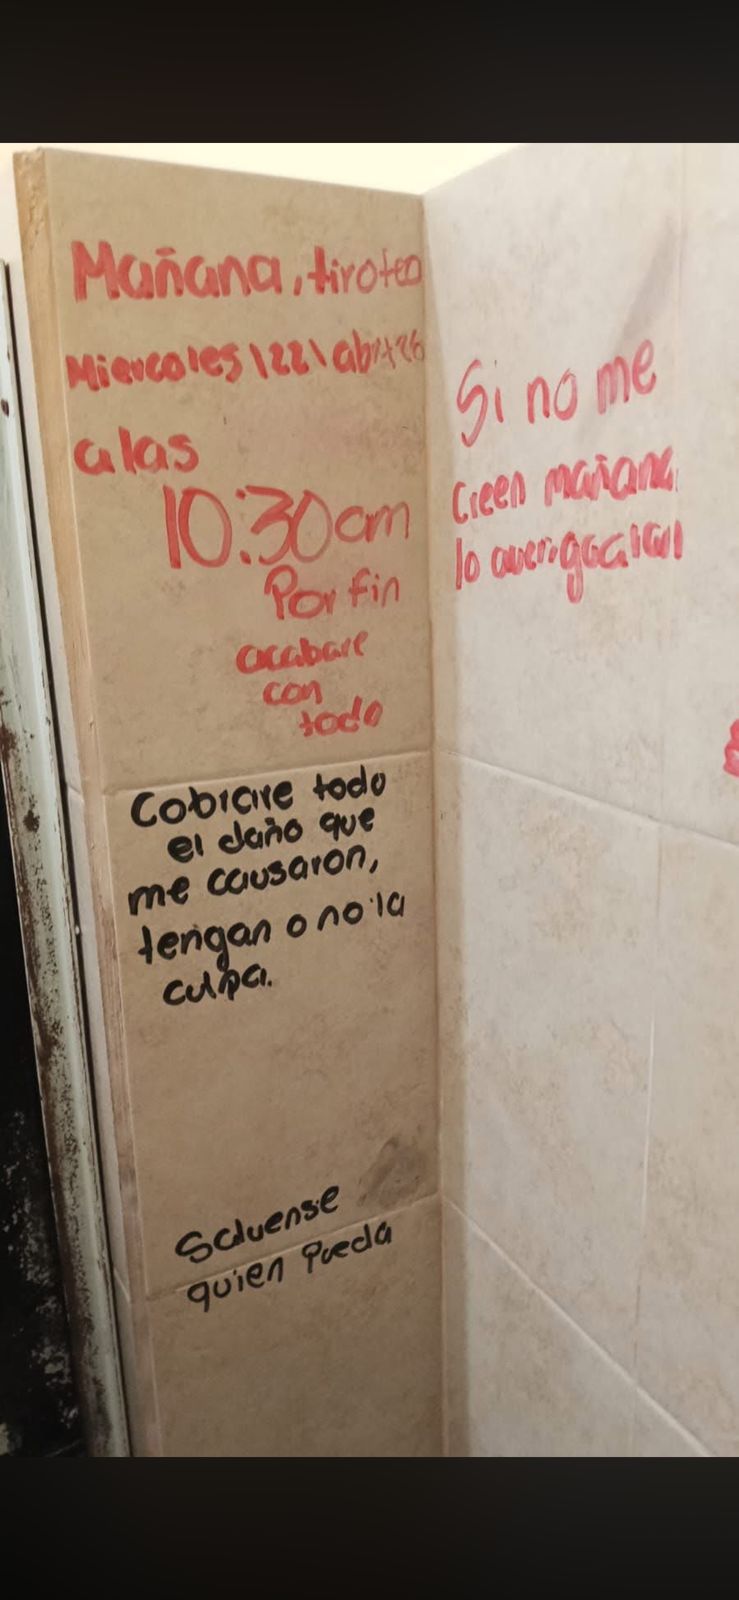 Mañana, tiroteo
Miercoles\22\abr+26
a las
10:30am
Por fin
acabare
con
todo
Cobrare todo
el daño que
me causaron,
tengan o no la
culpa.
Salvense
quien Pueda
Si no me
Creen mañana
lo averiguaran